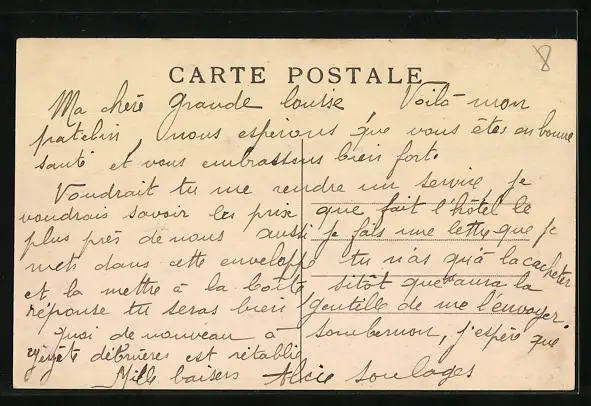 8
CARTE POSTALE
Ma chère grande Louise Voilà mon
patelin nous espérons que vous êtes en bonne
santé et vous embrassons bien fort.
Voudrait tu me rendre un service je
voudrais savoir les prix que fait l'hôtel le
plus près de nous aussi je fais une lettre que je
mets dans cette enveloppe tu n'as qu'à la cacheter
et la mettre à la boîte sitôt que aura la
réponse tu seras bien gentille de me l'envoyer.
Quoi de nouveau à Sombernon, j'espère que
débrières est rétablie
Mille baisers Soulages